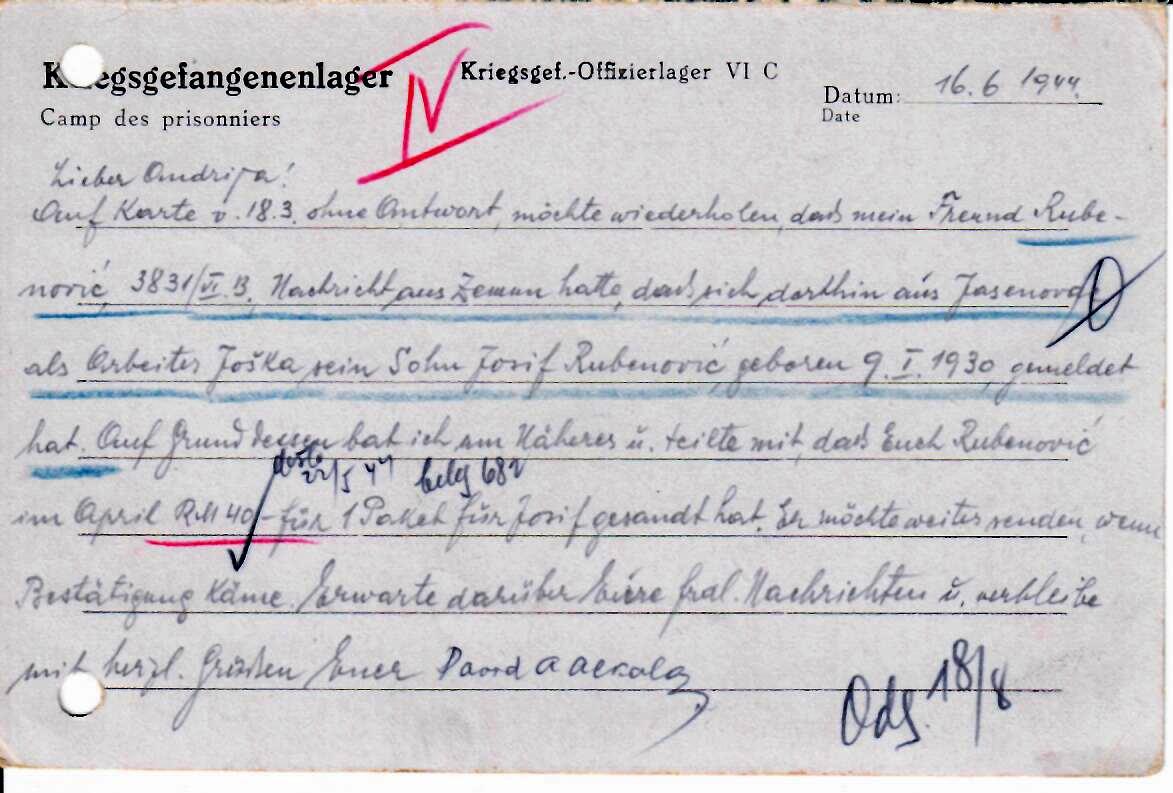 Kriegsgefangenenlager
Camp des prisonniers
IV
Kriegsgef.-Offizierlager VI C
Datum: 16. 6 1944.
Date
Lieber Andrija!
Auf Karte v. 18.3. ohne Antwort, möchte wiederholen, daß mein Freund Rube-
nović, 3831/VI B, Nachricht aus Zemun hatte, daß sich dorthin aus Jasenovac
als Arbeiter Joška sein Sohn Josif Rubenović, geboren 9. I. 1930, gemeldet
hat. Auf Grund dessen bat ich um Näheres u. teilte mit, daß Euch Rubenović
22/5 44 682
im April RM 40.- für 1 Paket für Josif gesandt hat. Er möchte weiter senden, wenn
Bestätigung käme. Erwarte darüber Eure frdl. Nachrichten u. verbleibe
mit herzl. Grüßen Euer
Odg. 18/8